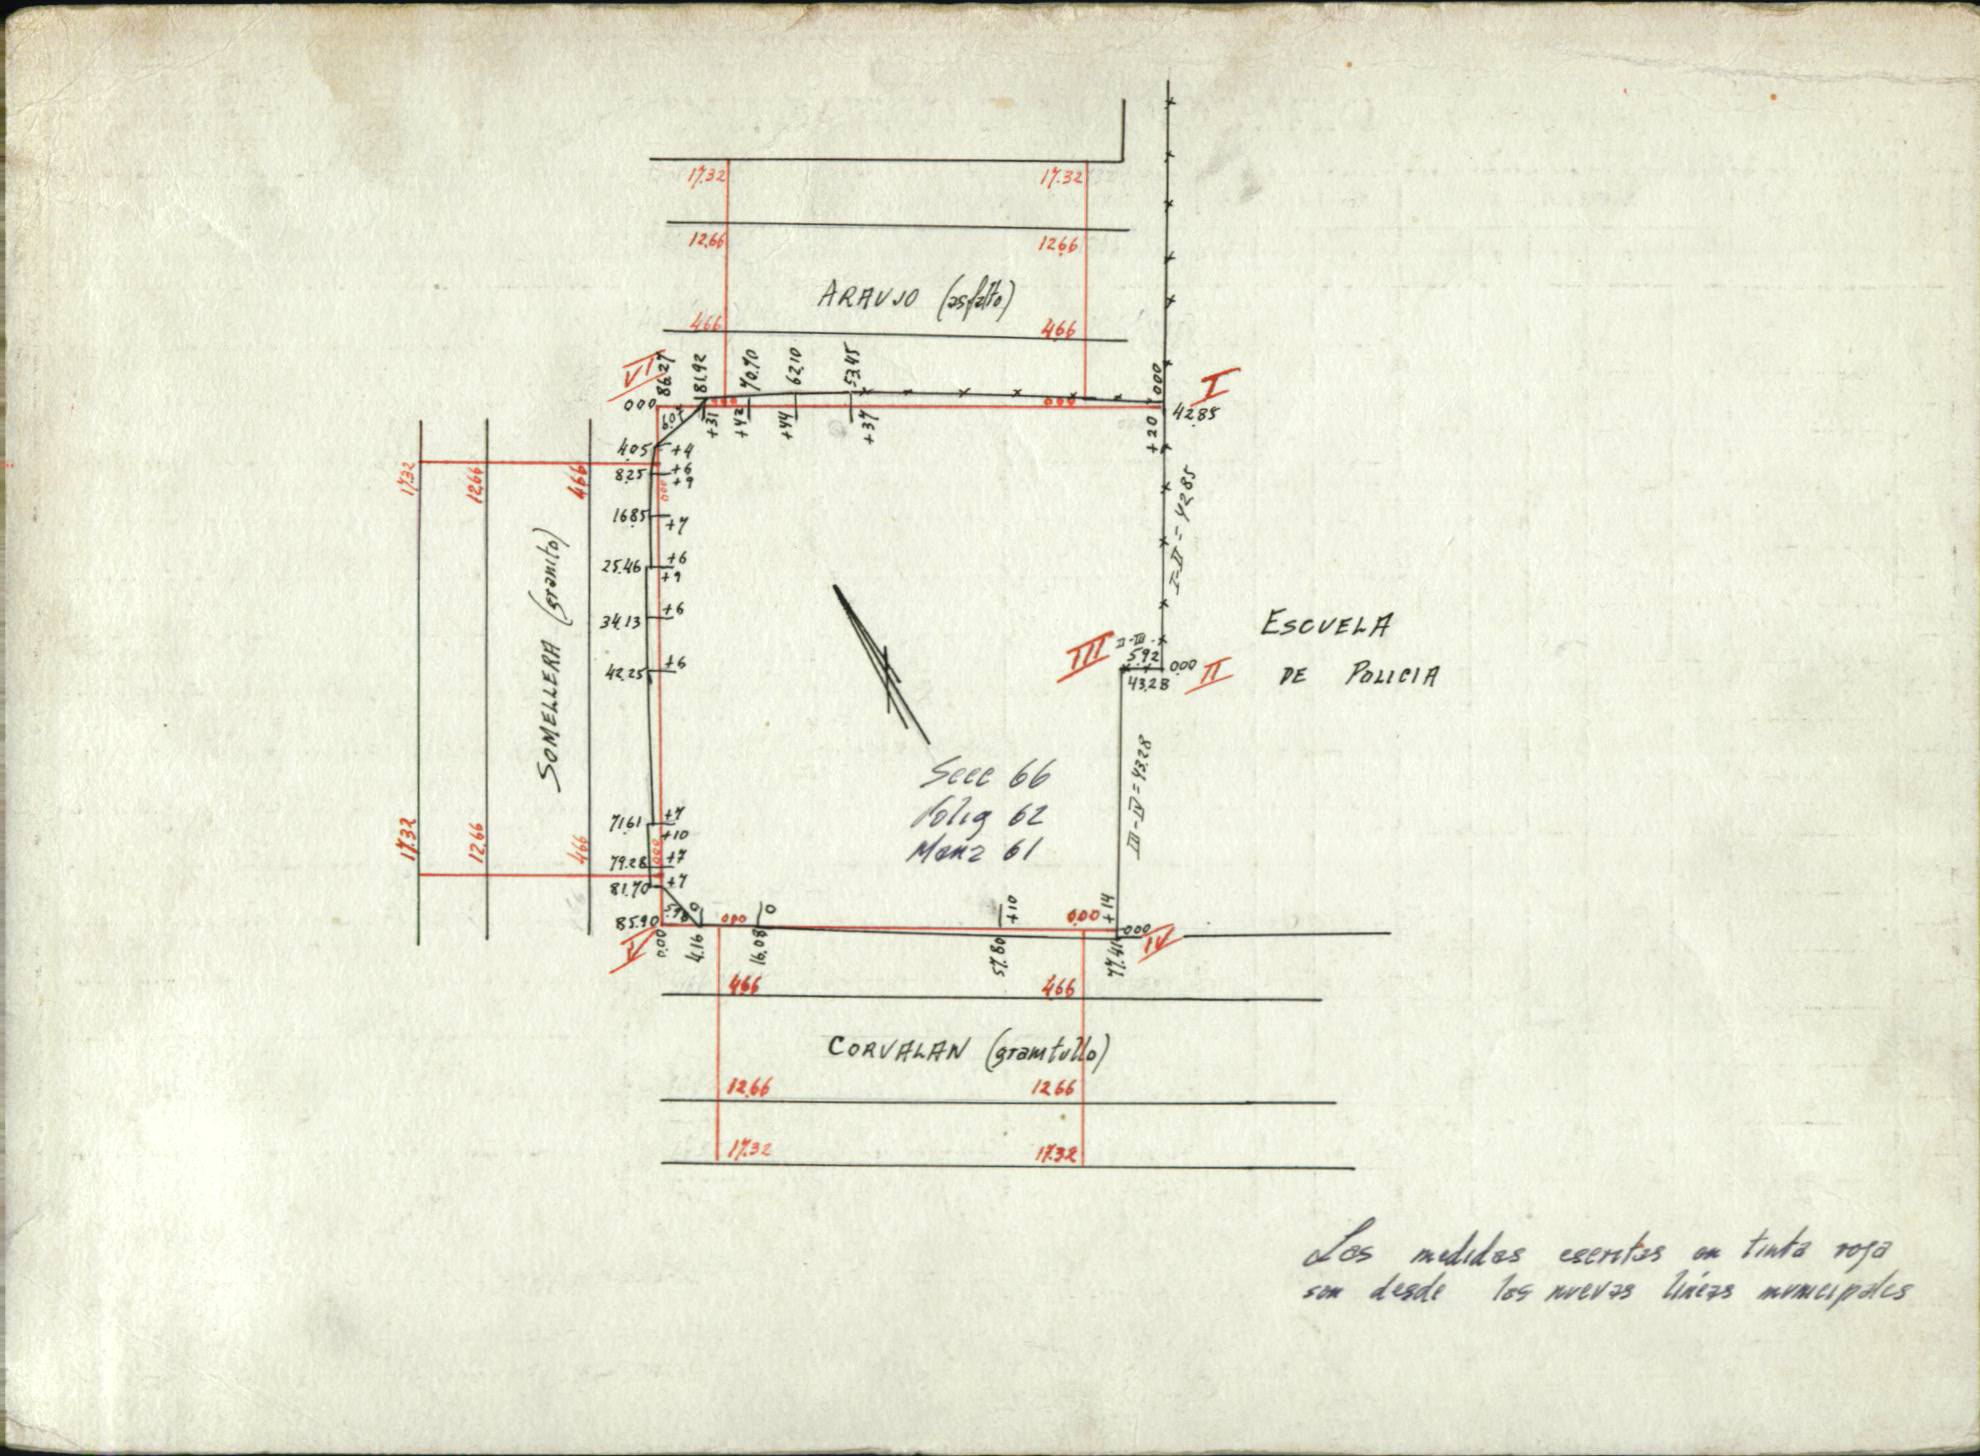 17.32 17.32
12.66 12.66
ARAUJO (asfalto)
4.66 4.66
VI 86.27 81.92 70.70 62.10 53.45 0.00 I
0.00 0.00 0.00 42.85
6.01 +31 +42 +44 +37 +20
4.05 +4
8.25 +6
+9
0.00
17.32 12.66 4.66
16.85 +7
I-II = 42.85
25.46 +6
+9
34.13 +6
SOMELLERA (granito)
ESCUELA
III II-III
5.92 0.00 II
42.25 +6
43.28
DE POLICIA
III-IV = 43.28
Secc 66
Polig 62
Manz 61
71.61 +7
+10
17.32 12.66 4.66
0.00
79.28 +7
81.70 +7
5.98 0 0 +10 +14
85.90 0.00 0.00 0.00
V 0.00 4.16 16.08 57.80 77.41 IV
4.66 4.66
CORVALAN (granitullo)
12.66 12.66
17.32 17.32
Las medidas escritas en tinta roja
son desde las nuevas líneas municipales